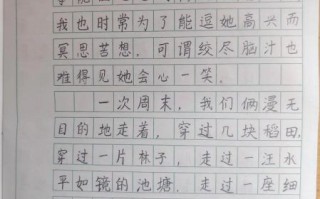 我也时常为了能逗她高兴而
冥思苦想，可谓绞尽脑汁也
难得见她会心一笑。
一次周末，我们俩漫无
目的地走着，穿过几块稻田，
穿过一片林子，走过一汪水
平如镜的池塘，走过一座细